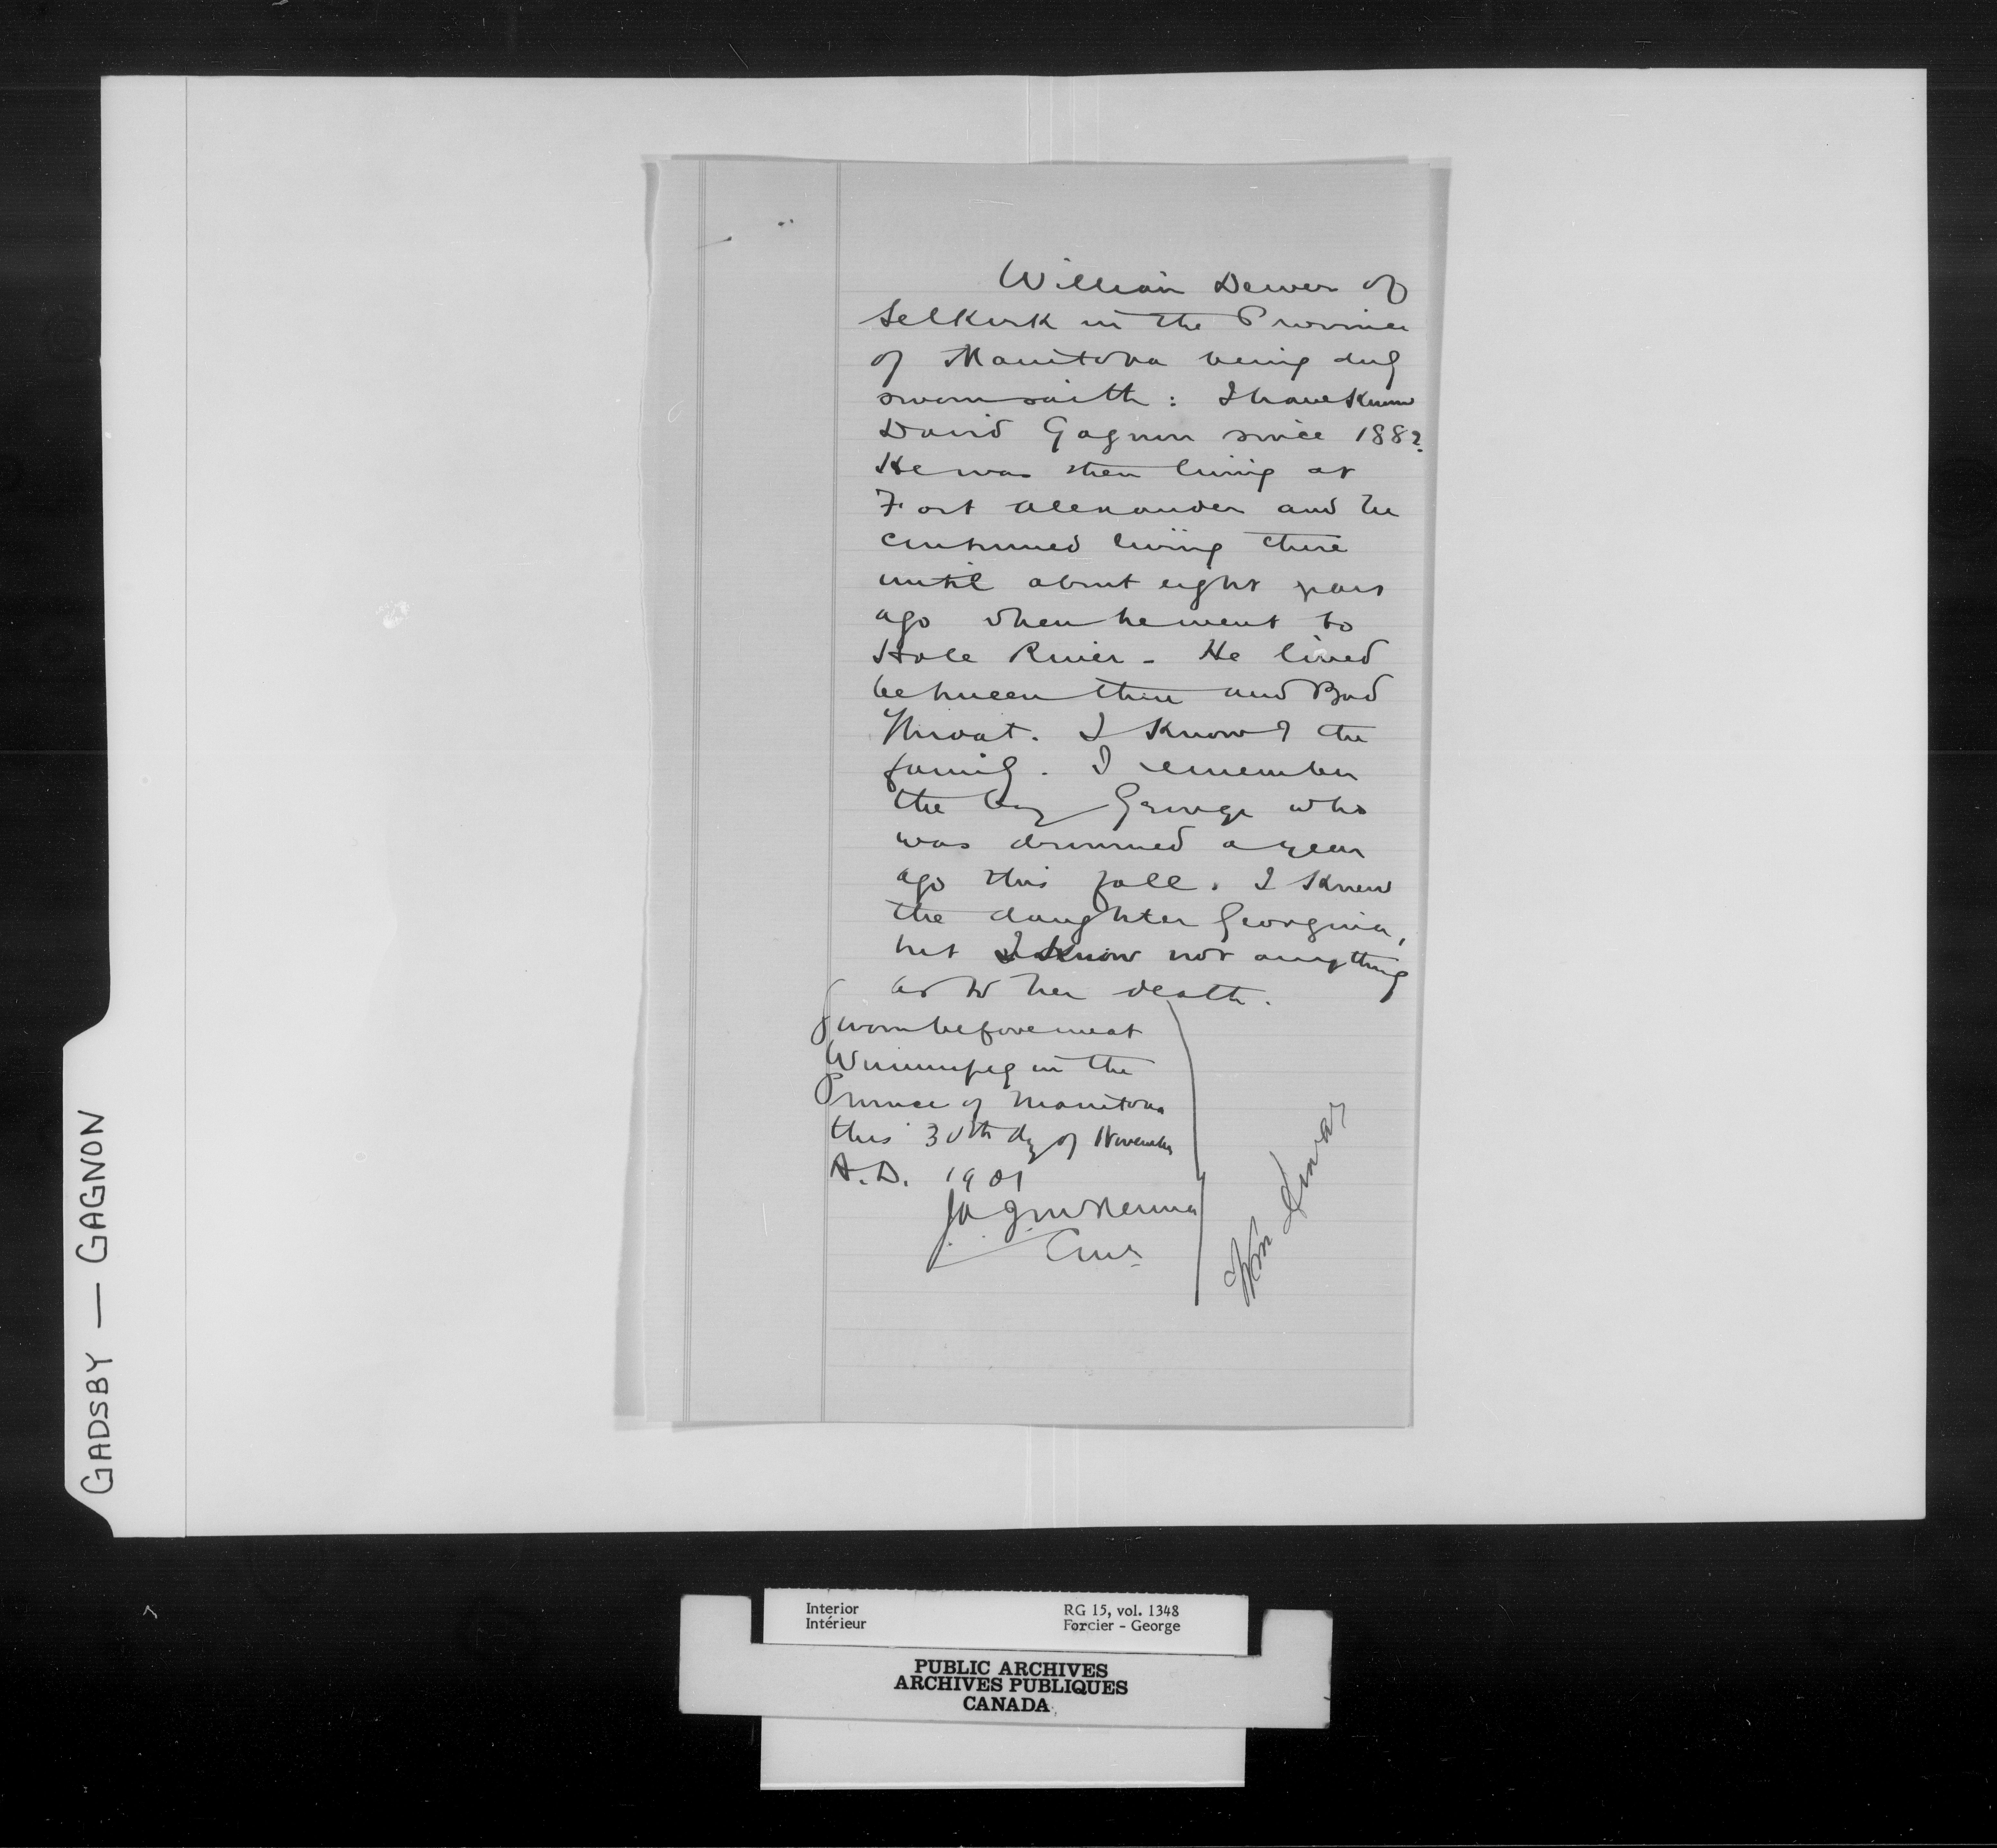 William Dewar of
Selkirk in the Province
of Manitoba being duly
sworn saith: I have known
David Gagnon since 1882.
He was then living at
Fort Alexander and he
continued living there
until about eight years
ago when he went to
Hole River - He lived
between there and Bad
Throat. I know the
family. I remember
the boy George who
was drowned a year
ago this fall. I knew
the daughter Georgina,
but I know not anything
as to her death.
Sworn before me at
Winnipeg in the
Province of Manitoba
this 30th day of November
A.D. 1901
Wm Dewar
GADSBY — GAGNON
Interior
Intérieur
RG 15, vol. 1348
Forcier - George
PUBLIC ARCHIVES
ARCHIVES PUBLIQUES
CANADA